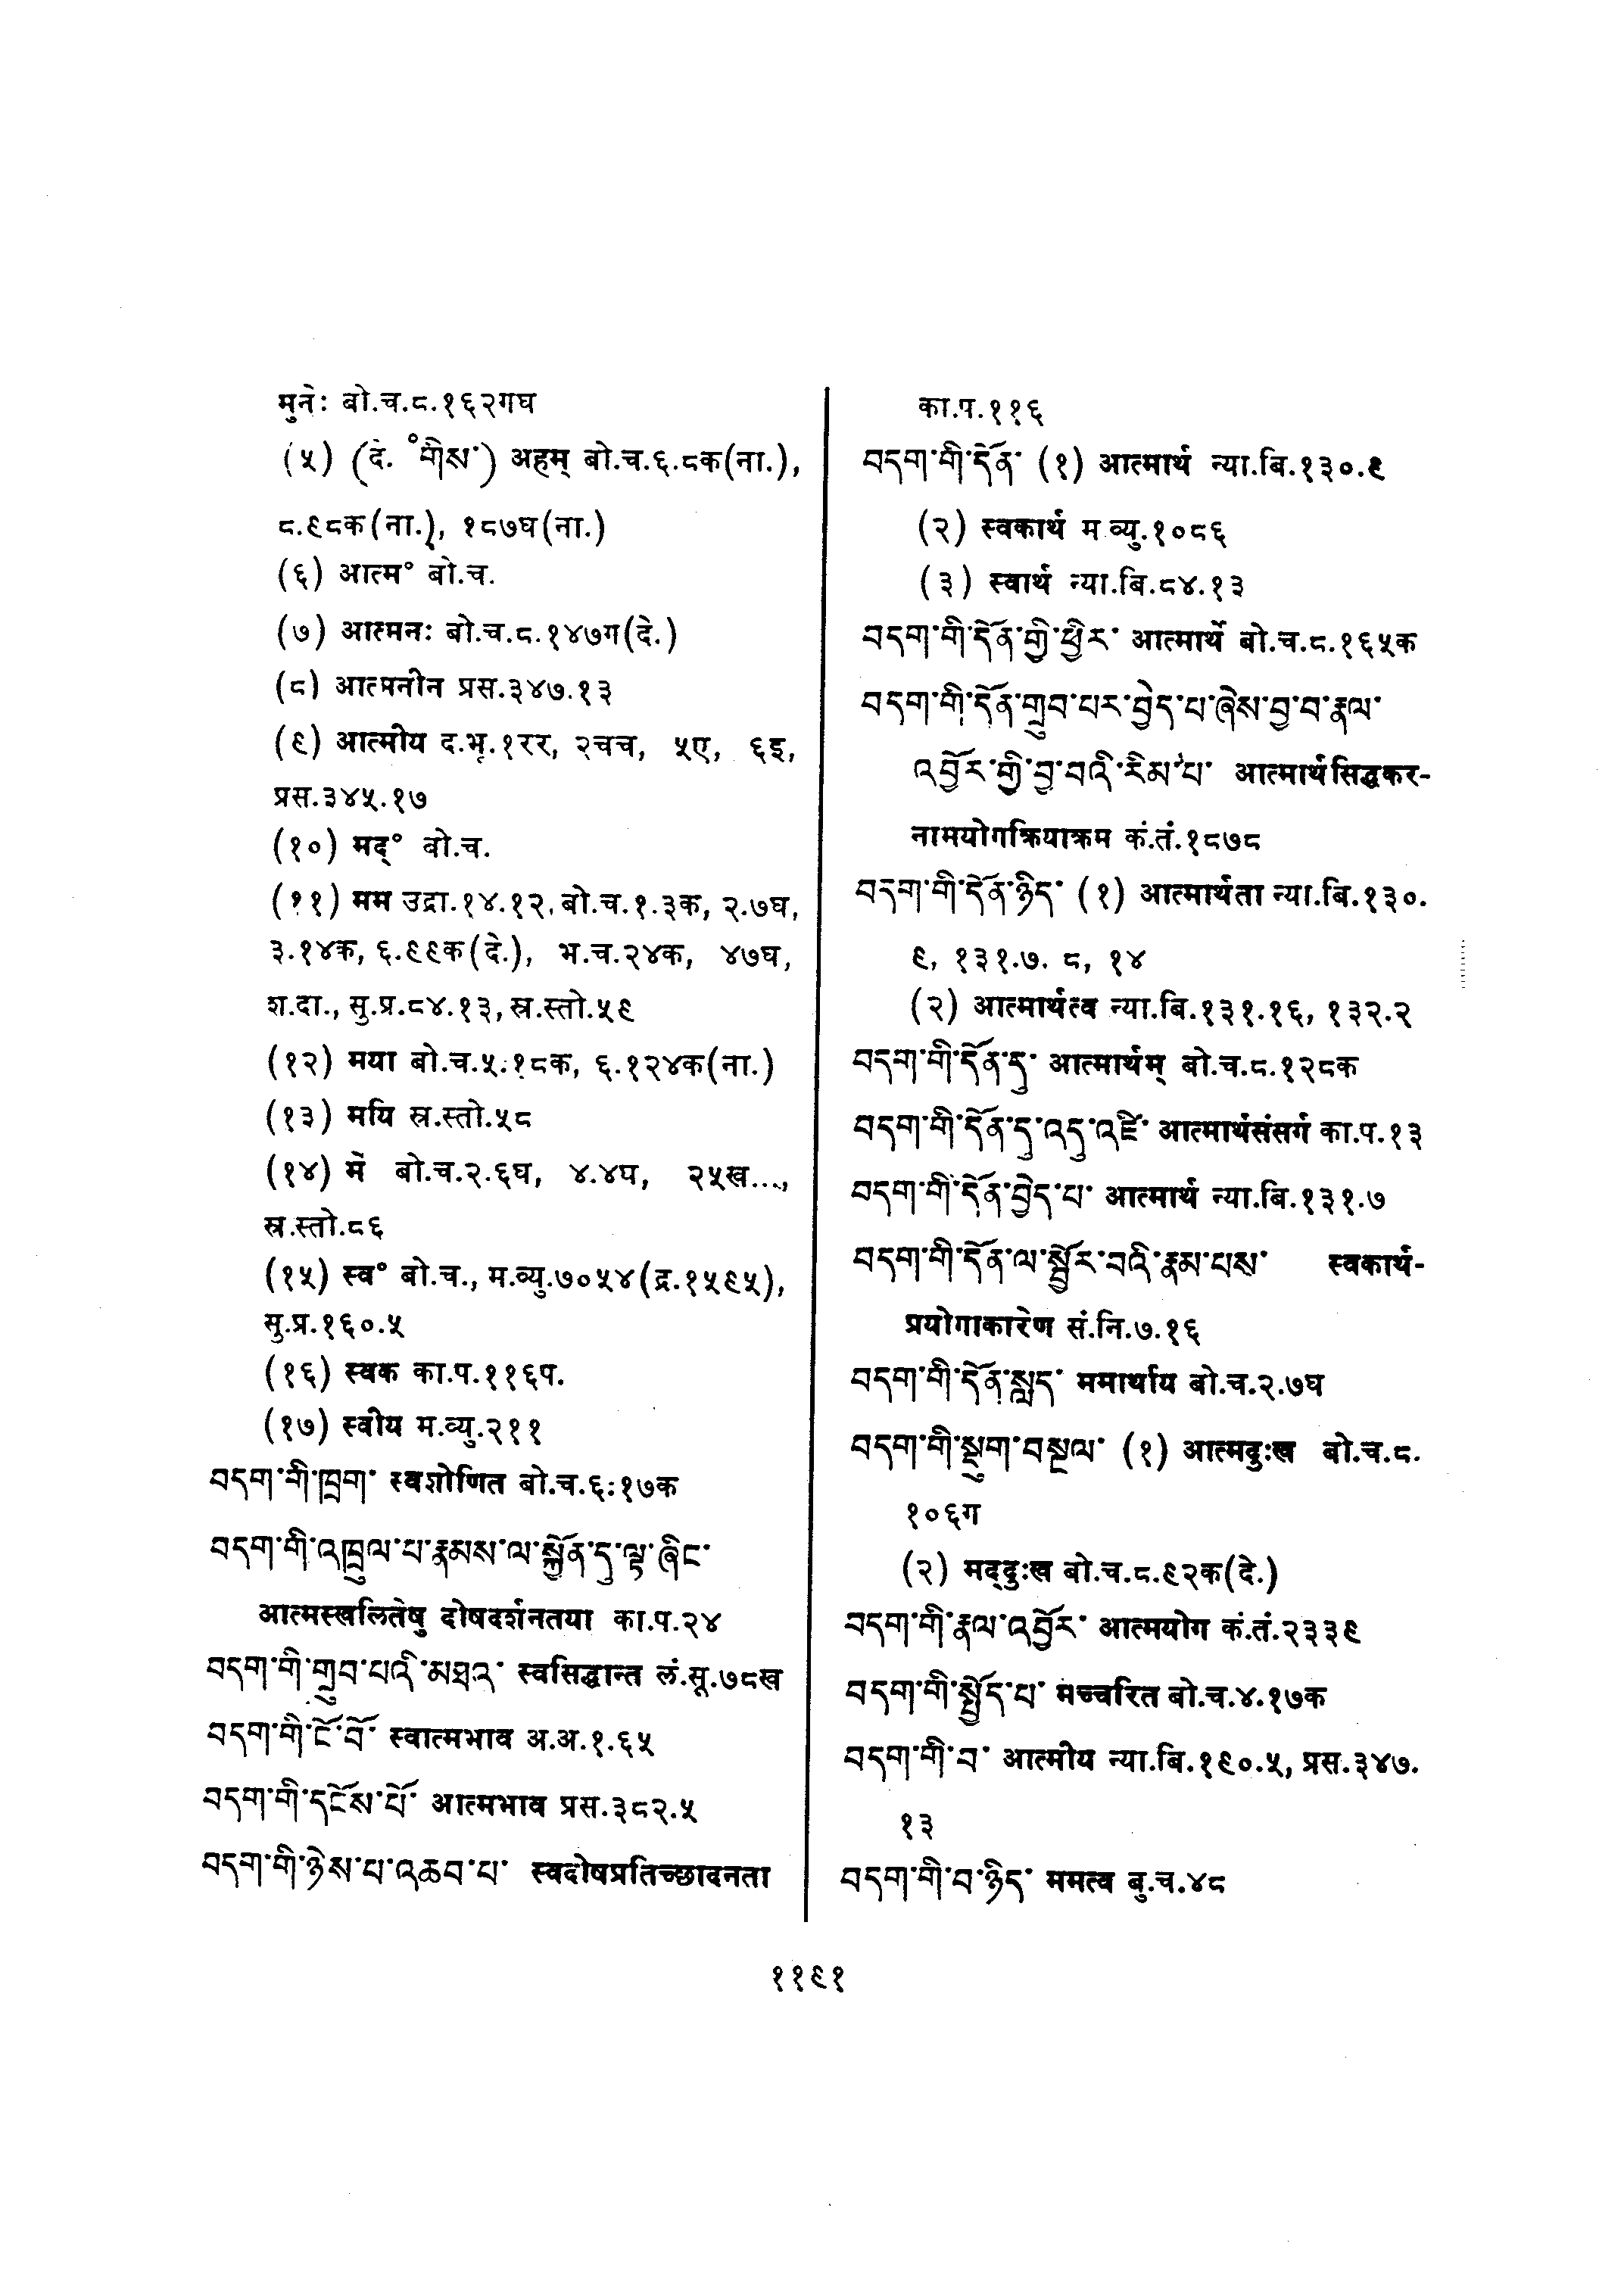 मुनेः बो.च.८.१६२गघ
(५) (दे. °གིས་) अहम् बो.च.६.८क(ना.),
८.९८क(ना.), १८७घ(ना.)
(६) आत्म° बो.च.
(७) आत्मनः बो.च.८.१४७ग(दे.)
(८) आत्मनीन प्रस.३४७.१३
(९) आत्मीय द.भू.१रर, २चच, ५ए, ६इ,
प्रस.३४५.१७
(१०) मद्° बो.च.
(११) मम उद्रा.१४.१२, बो.च.१.३क, २.७घ,
३.१४क, ६.९९क(दे.), भ.च.२४क, ४७घ,
श.दा., सु.प्र.८४.१३, स्र.स्तो.५९
(१२) मया बो.च.५.१८क, ६.१२४क(ना.)
(१३) मयि स्र.स्तो.५८
(१४) मे बो.च.२.६घ, ४.४घ, २५ख...,
स्र.स्तो.८६
(१५) स्व° बो.च., म.व्यु.७०५४(द्र.१५९५),
सु.प्र.१६०.५
(१६) स्वक का.प.११६प.
(१७) स्वीय म.व्यु.२११
བདག་གི་ཁྲག་ स्वशोणित बो.च.६:१७क
བདག་གི་འཁྲུལ་པ་རྣམས་ལ་སྐྱོན་དུ་ལྟ་ཞིང་
आत्मस्खलितेषु दोषदर्शनतया का.प.२४
བདག་གི་གྲུབ་པའི་མཐའ་ स्वसिद्धान्त लं.सू.७८ख
བདག་གི་ངོ་བོ་ स्वात्मभाव अ.अ.१.६५
བདག་གི་དངོས་པོ་ आत्मभाव प्रस.३८२.५
བདག་གི་ཉེས་པ་འཆབ་པ་ स्वदोषप्रतिच्छादनता
का.प.११६
བདག་གི་དོན་ (१) आत्मार्थ न्या.बि.१३०.९
(२) स्वकार्थ म.व्यु.१०८६
(३) स्वार्थ न्या.बि.८४.१३
བདག་གི་དོན་གྱི་ཕྱིར་ आत्मार्थे बो.च.८.१६५क
བདག་གི་དོན་གྲུབ་པར་བྱེད་པ་ཞེས་བྱ་བ་རྣལ་
འབྱོར་གྱི་བྱ་བའི་རིམ་པ་ आत्मार्थसिद्धकर-
नामयोगक्रियाक्रम कं.तं.१८७८
བདག་གི་དོན་ཉིད་ (१) आत्मार्थता न्या.बि.१३०.
९, १३१.७. ८, १४
(२) आत्मार्थत्व न्या.बि.१३१.१६, १३२.२
བདག་གི་དོན་དུ་ आत्मार्थम् बो.च.८.१२८क
བདག་གི་དོན་དུ་འདུ་འཛི་ आत्मार्थसंसर्ग का.प.१३
བདག་གི་དོན་བྱེད་པ་ आत्मार्थ न्या.बि.१३१.७
བདག་གི་དོན་ལ་སྦྱོར་བའི་རྣམ་པས་ स्वकार्थ-
प्रयोगाकारेण सं.नि.७.१६
བདག་གི་དོན་སླད་ ममार्थाय बो.च.२.७घ
བདག་གི་སྡུག་བསྔལ་ (१) आत्मदुःख बो.च.८.
१०६ग
(२) मद्दुःख बो.च.८.९२क(दे.)
བདག་གི་རྣལ་འབྱོར་ आत्मयोग कं.तं.२३३९
བདག་གི་སྤྱོད་པ་ मच्चरित बो.च.४.१७क
བདག་གི་བ་ आत्मीय न्या.बि.१९०.५, प्रस.३४७.
१३
བདག་གི་བ་ཉིད་ ममत्व बु.च.४८
११९१